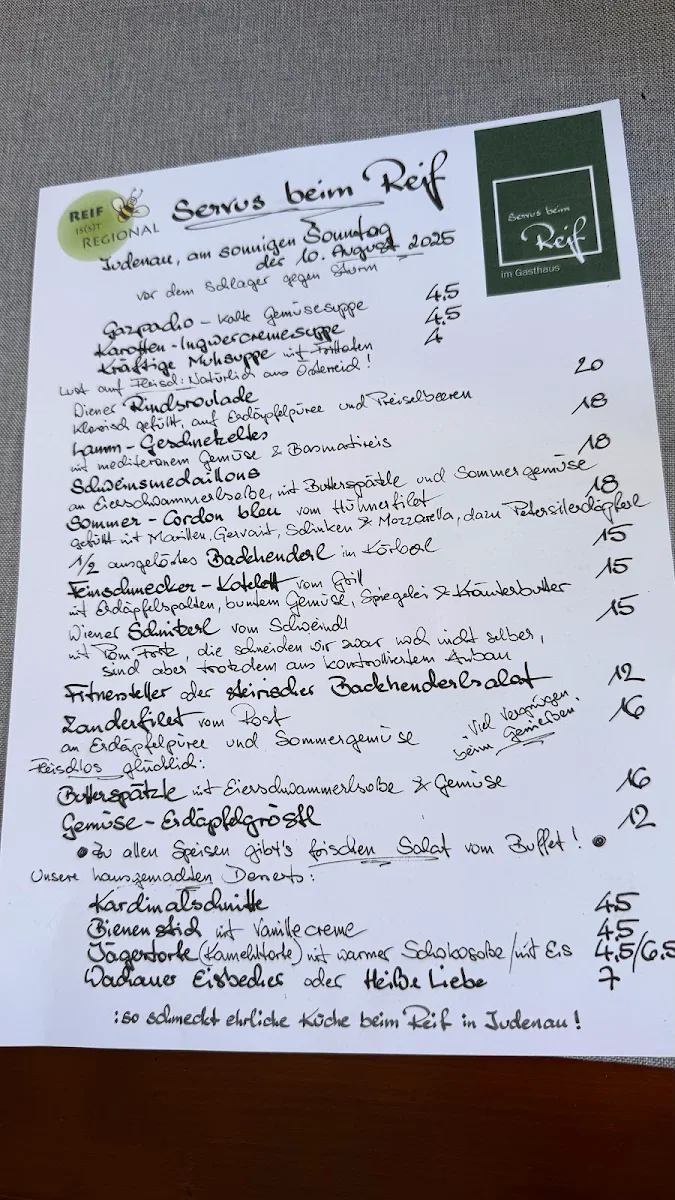 REIF
IS(S)T
REGIONAL
Servus beim Reif
Servus beim
Reif
im Gasthaus
Judenau, am sonnigen Sonntag
der 10. August 2025
vor dem Schlager gegen Sturm
Gazpacho - kalte Gemüsesuppe 4.5
Karotten-Ingwercremesuppe 4.5
Kräftige Muhsuppe mit Frittaten 4
Lust auf Fleisch: Natürlich aus Österreich!
Wiener Rindsroulade 20
klassisch gefüllt, auf Erdäpfelpüree und Preiselbeeren
Lamm-Geschnetzeltes 18
mit mediteranem Gemüse & Basmatireis
Schweinsmedaillons 18
an Eierschwammerlsoße, mit Butterspätzle und Sommergemüse
Sommer-Cordon bleu vom Hühnerfilet 18
gefüllt mit Marillen, Gervait, Schinken & Mozzarella, dazu Petersilerdäpferl
1/2 ausgelöstes Backhenderl im Körberl 15
Feinschmecker-Kotelett vom Grill 15
mit Erdäpfelspalten, buntem Gemüse, Spiegelei & Kräuterbutter
Wiener Schnitzerl vom Schweindl 15
mit Pom Fritz, die schneiden wir zwar noch nicht selber,
sind aber trotzdem aus kontrolliertem Anbau
Fitnessteller oder steirischer Backhenderlsalat 12
Zanderfilet vom Rost 16
an Erdäpfelpüree und Sommergemüse
Viel Vergnügen
beim Genießen
Fleischlos glücklich:
Butterspätzle mit Eierschwammerlsoße & Gemüse 16
Gemüse-Erdäpfelgröstl 12
• Zu allen Speisen gibt's frischen Salat vom Buffet! •
Unsere hausgemachten Desserts:
Kardinalschnitte 4.5
Bienenstich mit Vanillecreme 4.5
Jägertorte (Kamelttorte) mit warmer Schokosoße/mit Eis 4,5/6.5
Wachauer Eisbecher oder Heiße Liebe 7
:so schmeckt ehrliche Küche beim Reif in Judenau!